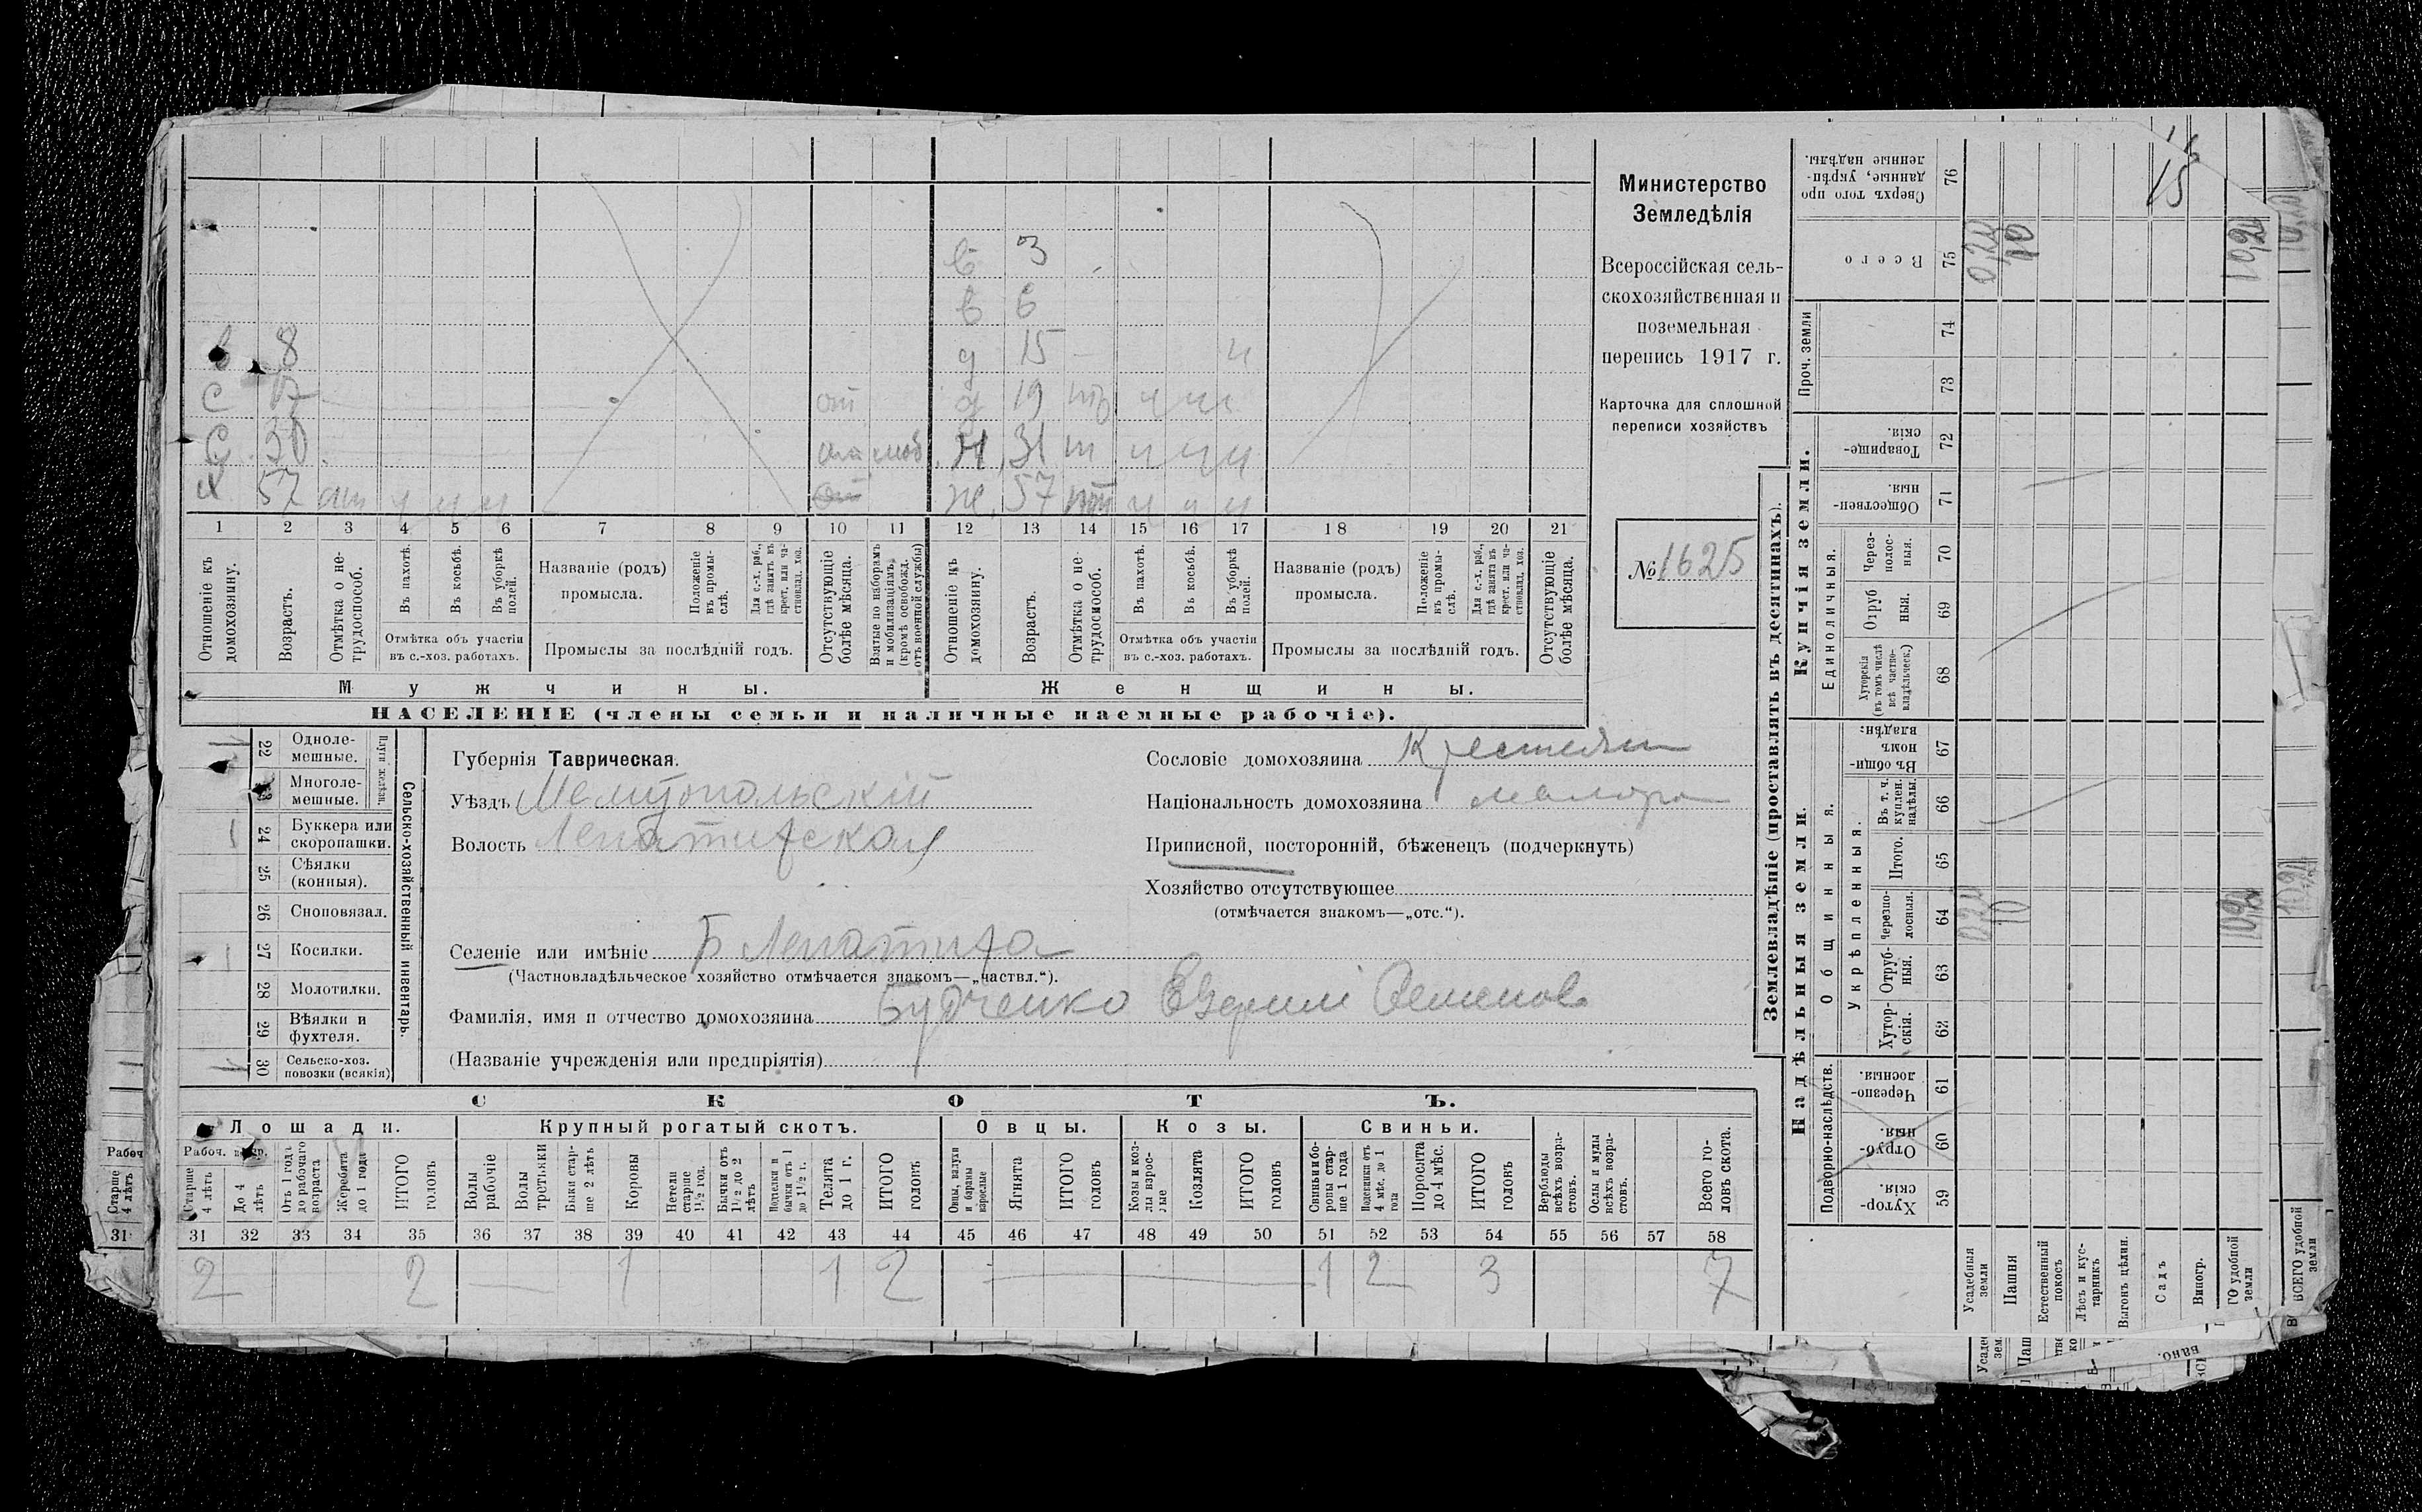 Министерство
Земледѣлія
Всероссійская сель-
скохозяйственная и
поземельная
перепись 1917 г.
Карточка для сплошной
переписи хозяйствъ
№ 1625
в 3
в 6
в 8 д 15 ч
с 17 от д 19 ч ч ч
с 30 от моб 31 ч ч ч
х 57 ч ч ч от 57 ч ч ч
1 2 3 4 5 6 7 8 9 10 11 12 13 14 15 16 17 18 19 20 21
Отношеніе къ домохозяину.
Возрастъ.
Отмѣтка о не-трудоспособ.
Въ пахотѣ.
Въ косьбѣ.
Въ уборкѣ полей.
Отмѣтка объ участіи въ с.-хоз. работахъ.
Названіе (родъ) промысла.
Положеніе въ промы-слѣ.
Для с.-х. раб., гдѣ занятъ въ крест. или ча-стновлад. хоз.
Промыслы за послѣдній годъ.
Отсутствующіе болѣе мѣсяца.
Взятые по наборамъ и мобилизаціямъ (кромѣ освобожд. отъ военной службы)
Отношеніе къ домохозяину.
Возрастъ.
Отмѣтка о не-трудоспособ.
Въ пахотѣ.
Въ косьбѣ.
Въ уборкѣ полей.
Отмѣтка объ участіи въ с.-хоз. работахъ.
Названіе (родъ) промысла.
Положеніе въ промы-слѣ.
Для с.-х. раб., гдѣ занята въ крест. или ча-стновлад. хоз.
Промыслы за послѣдній годъ.
Отсутствующіе болѣе мѣсяца.
Мужчины. Женщины.
НАСЕЛЕНІЕ (члены семьи и наличные наемные рабочіе).
Сельско-хозяйственный инвентарь.
Плуги желѣзн.
22 Одноле-мешные.
23 Многоле-мешные.
24 Буккера или скоропашки.
25 Сѣялки (конныя).
26 Сноповязал.
27 Косилки.
28 Молотилки.
29 Вѣялки и фухтеля.
30 Сельско-хоз. повозки (всякія)
Губернія Таврическая.
Уѣздъ Мелитопольскій
Волость Лепатихская
Селеніе или имѣніе Б Лепатиха
(Частновладѣльческое хозяйство отмѣчается знакомъ—„частвл.“).
Фамилія, имя и отчество домохозяина Будченко Семенов
(Названіе учрежденія или предпріятія)
Сословіе домохозяина Крестьян
Національность домохозяина малоро
Приписной, посторонній, бѣженецъ (подчеркнуть)
Хозяйство отсутствующее
(отмѣчается знакомъ—„отс.“).
СКОТЪ.
Лошади. Крупный рогатый скотъ. Овцы. Козы. Свиньи.
Старше 4 лѣтъ
До 4 лѣтъ
Отъ 1 года до рабочаго возраста
Жеребята до 1 года
ИТОГО головъ
Волы рабочіе
Волы третьяки
Быки стар-ше 2 лѣтъ
Коровы
Нетели старше 1½ год.
Бычки отъ 1½ до 2 лѣтъ
Подтелки и бычки отъ 1 до 1½ г.
Телята до 1 г.
ИТОГО головъ
Овцы, валухи и бараны взрослые
Ягнята
ИТОГО головъ
Козы и коз-лы взрос-лые
Козлята
ИТОГО головъ
Свиньи и бо-ровы стар-ше 1 года
Подсвинки отъ 4 мѣс. до 1 года
Поросята до 4 мѣс.
ИТОГО головъ
Верблюды всѣхъ возра-стовъ.
Ослы и мулы всѣхъ возра-стовъ.
Всего го-ловъ скота.
31 32 33 34 35 36 37 38 39 40 41 42 43 44 45 46 47 48 49 50 51 52 53 54 55 56 57 58
2 2 1 1 2 1 2 3 7
Землевладѣніе (проставлять въ десятинахъ).
Надѣльныя земли. Купчія земли. Проч. земли
Подворно-наслѣдств.
Общинныя.
Укрѣпленныя.
Единоличныя.
59 Хутор-скія.
60 Отруб-ныя.
61 Черезпо-лосныя.
62 Хутор-скія.
63 Отруб-ныя.
64 Черезпо-лосныя.
65 Итого.
66 Въ т. ч. куплен. надѣлы
67 Въ общи-номъ владѣн.
68 Хуторскія (въ томъ числѣ всѣ частно-владѣльческ.)
69 Отруб ныя.
70 Через-полос-ныя.
71 Обществен-ныя.
72 Товарище-скія.
73
74
75 Всего
76 Сверхъ того про данные, укрѣп-ленные надѣлы.
Усадебныя земли 0,20 0,20
Пашня 10 10
Естественный покосъ
Лѣсъ и кус-тарникъ
Выгонъ цѣлин.
Садъ
Виногр.
ГО удобной земли 10,20 10,20
ВСЕГО удобной земли
15
Рабоч
Старше 4 лѣтъ
31